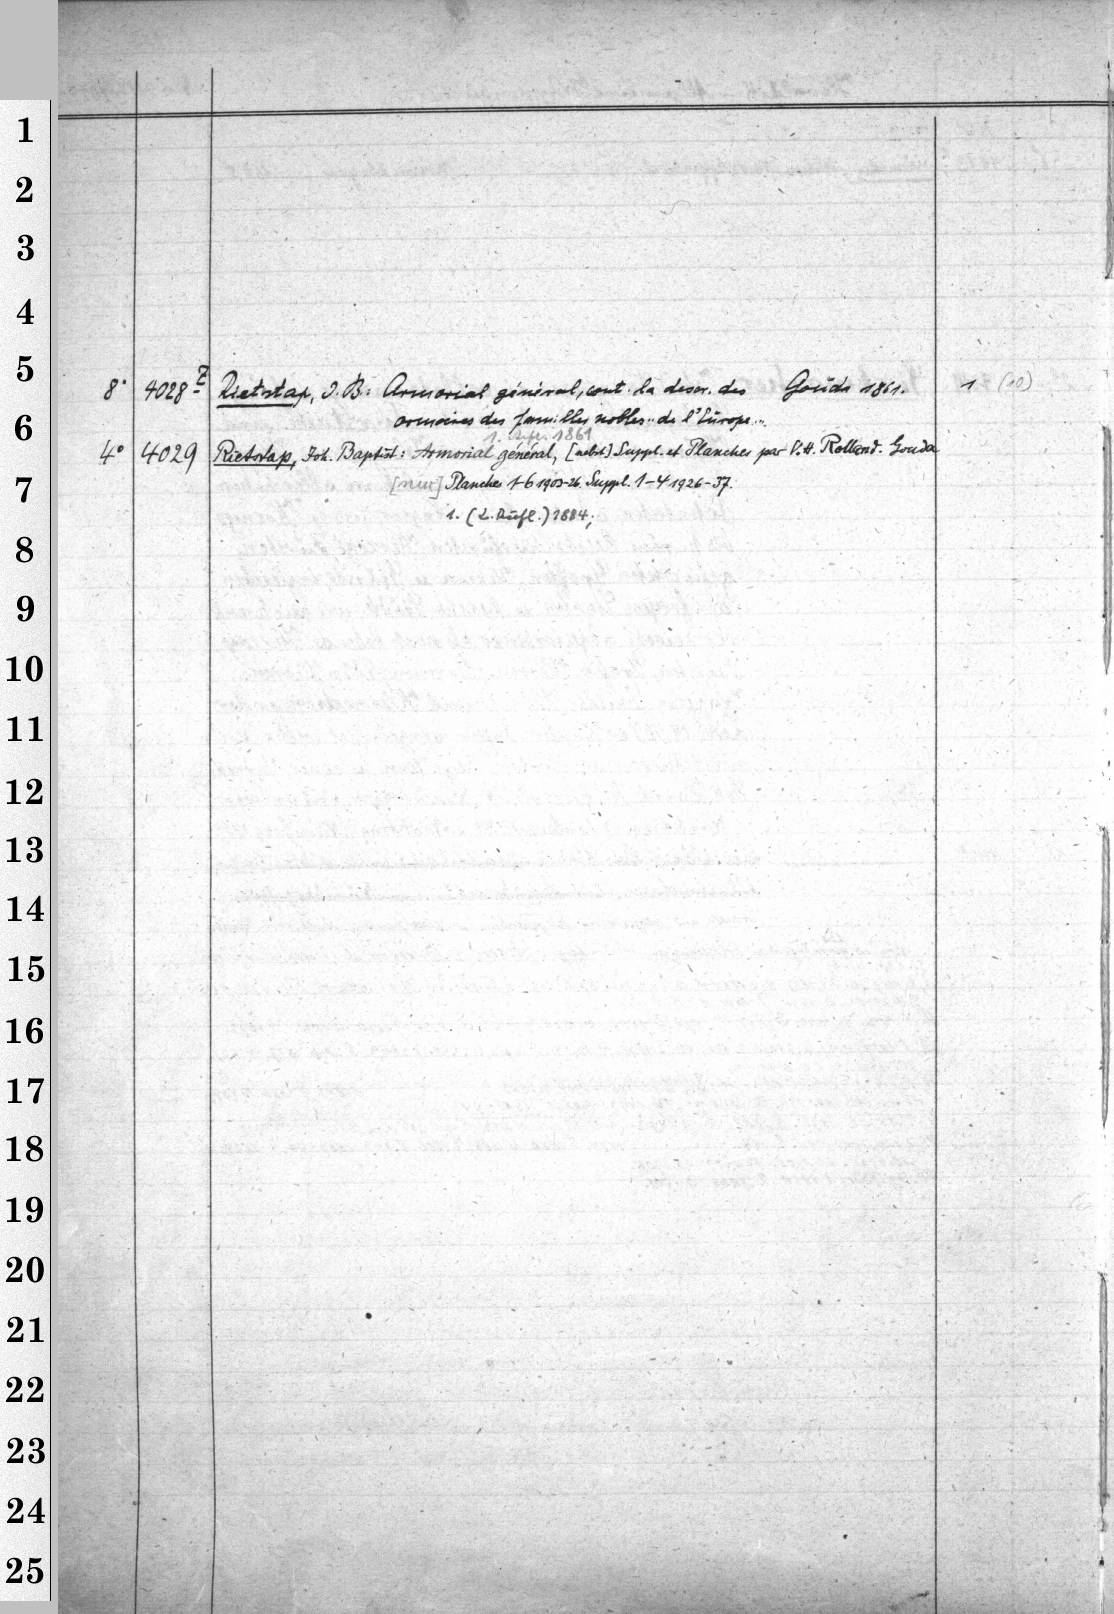 1
2
3
4
5
8° 4028 Z Rietstap, J. B.: Armorial général, cont. la descr. des Gouda 1861. 1 (10)
6
armoiries des familles nobles .. de l'Europe ..
1. Aufl. 1861
4° 4029 Rietstap, Joh. Baptist: Armorial général, [nebst] Suppl. et Planches par V. H. Rolland. Gouda
7
[nur] Planches 1-6 1903-26. Suppl. 1-4 1926-37.
1. (2. Aufl.) 1884;
8
9
10
11
12
13
14
15
16
17
18
19
20
21
22
23
24
25